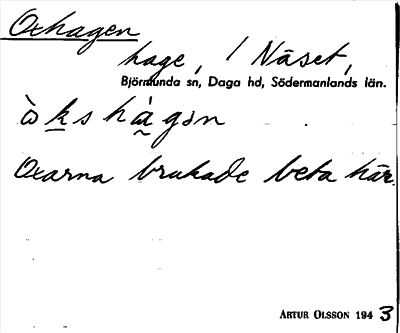 Oxhagen
hage, / Näset,
Björnlunda sn, Daga hd, Södermanlands län.
Oxarna brukade beta här.
ARTUR OLSSON 1943